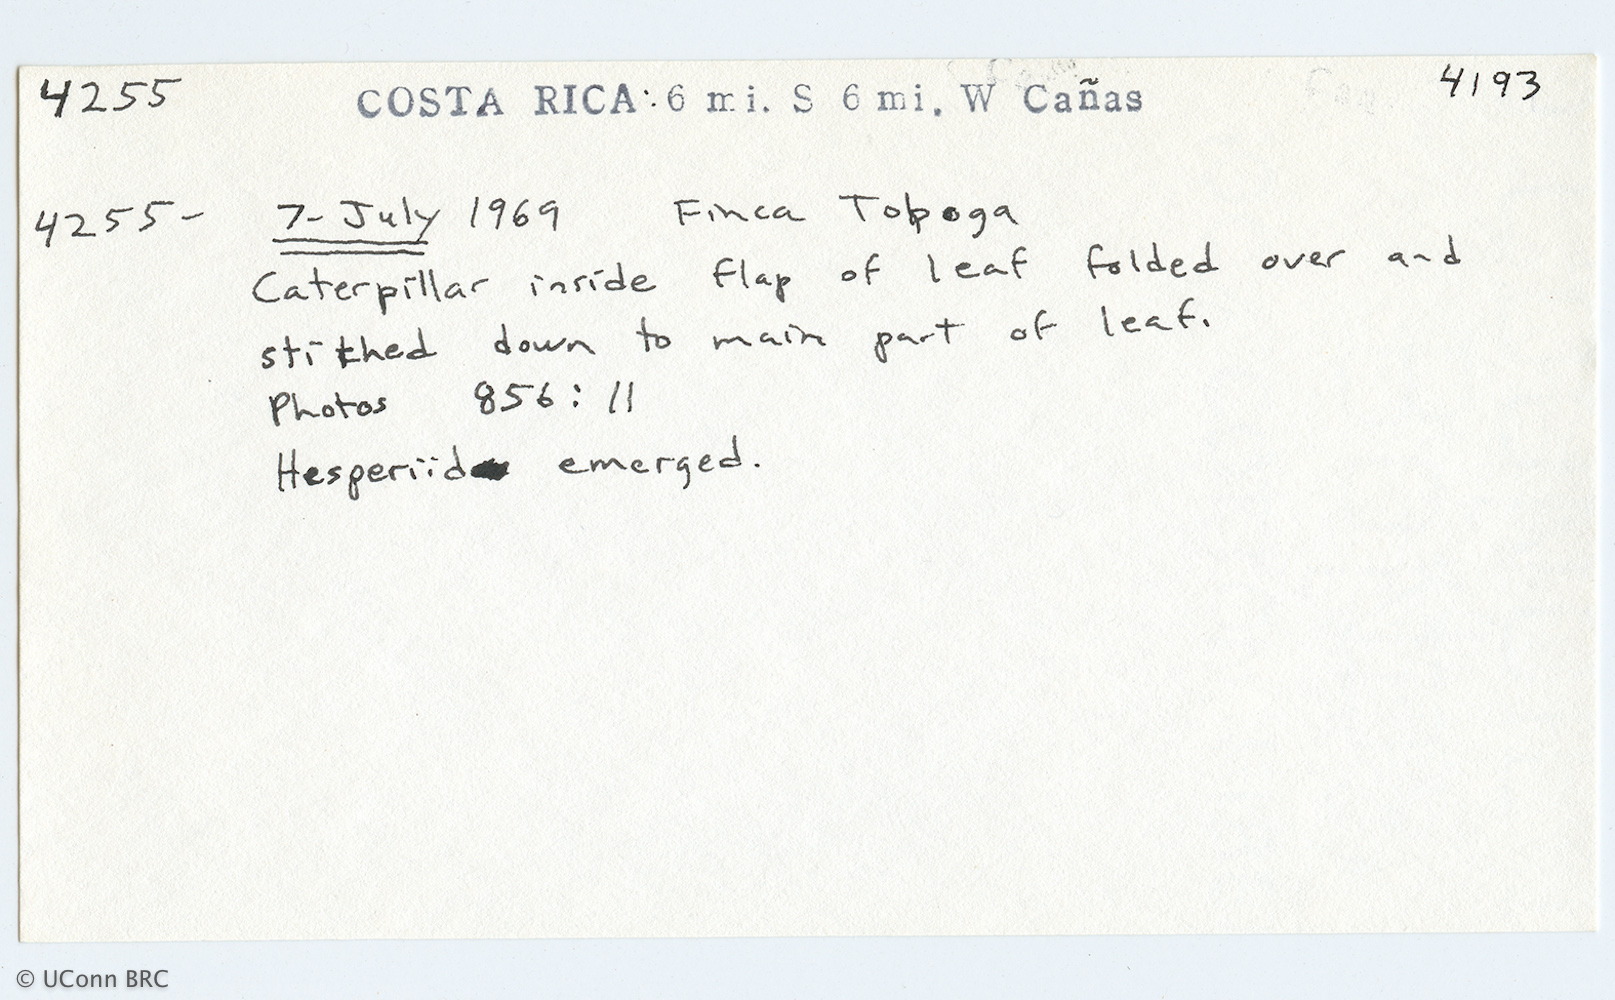 4255 COSTA RICA: 6 mi. S 6 mi. W Cañas 4193
4255- 7-July 1969 Finca Toboga
Caterpillar inside flap of leaf folded over and
stitched down to main part of leaf.
Photos 856: 11
Hesperiid emerged.
© UConn BRC